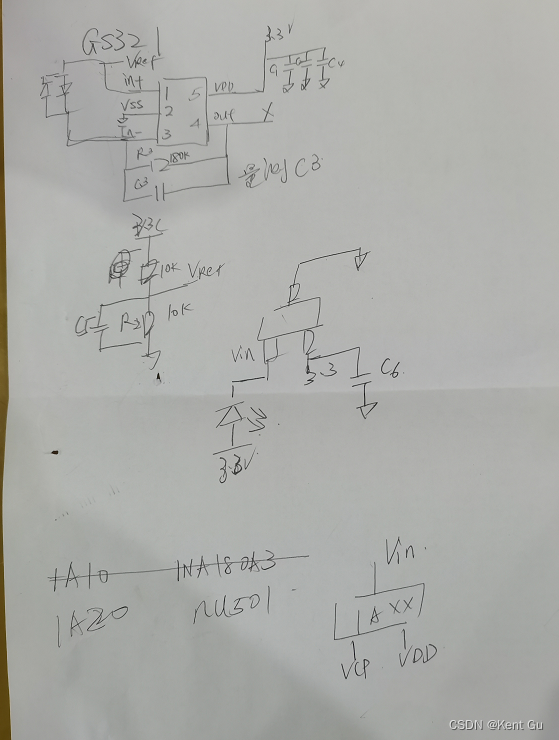 GS321
Vref
3.3V
in+
VSS
In-
1
2
3
5
4
VDD
out
X
C4
R3
180K
C3
3.3V
10K
Vref
C5
R2
10K
Vin
3.3
C6
3.3V
1A10
INA180A3
1A20
NU501
Vin
1AXX
VCP
VDD
CSDN @Kent Gu